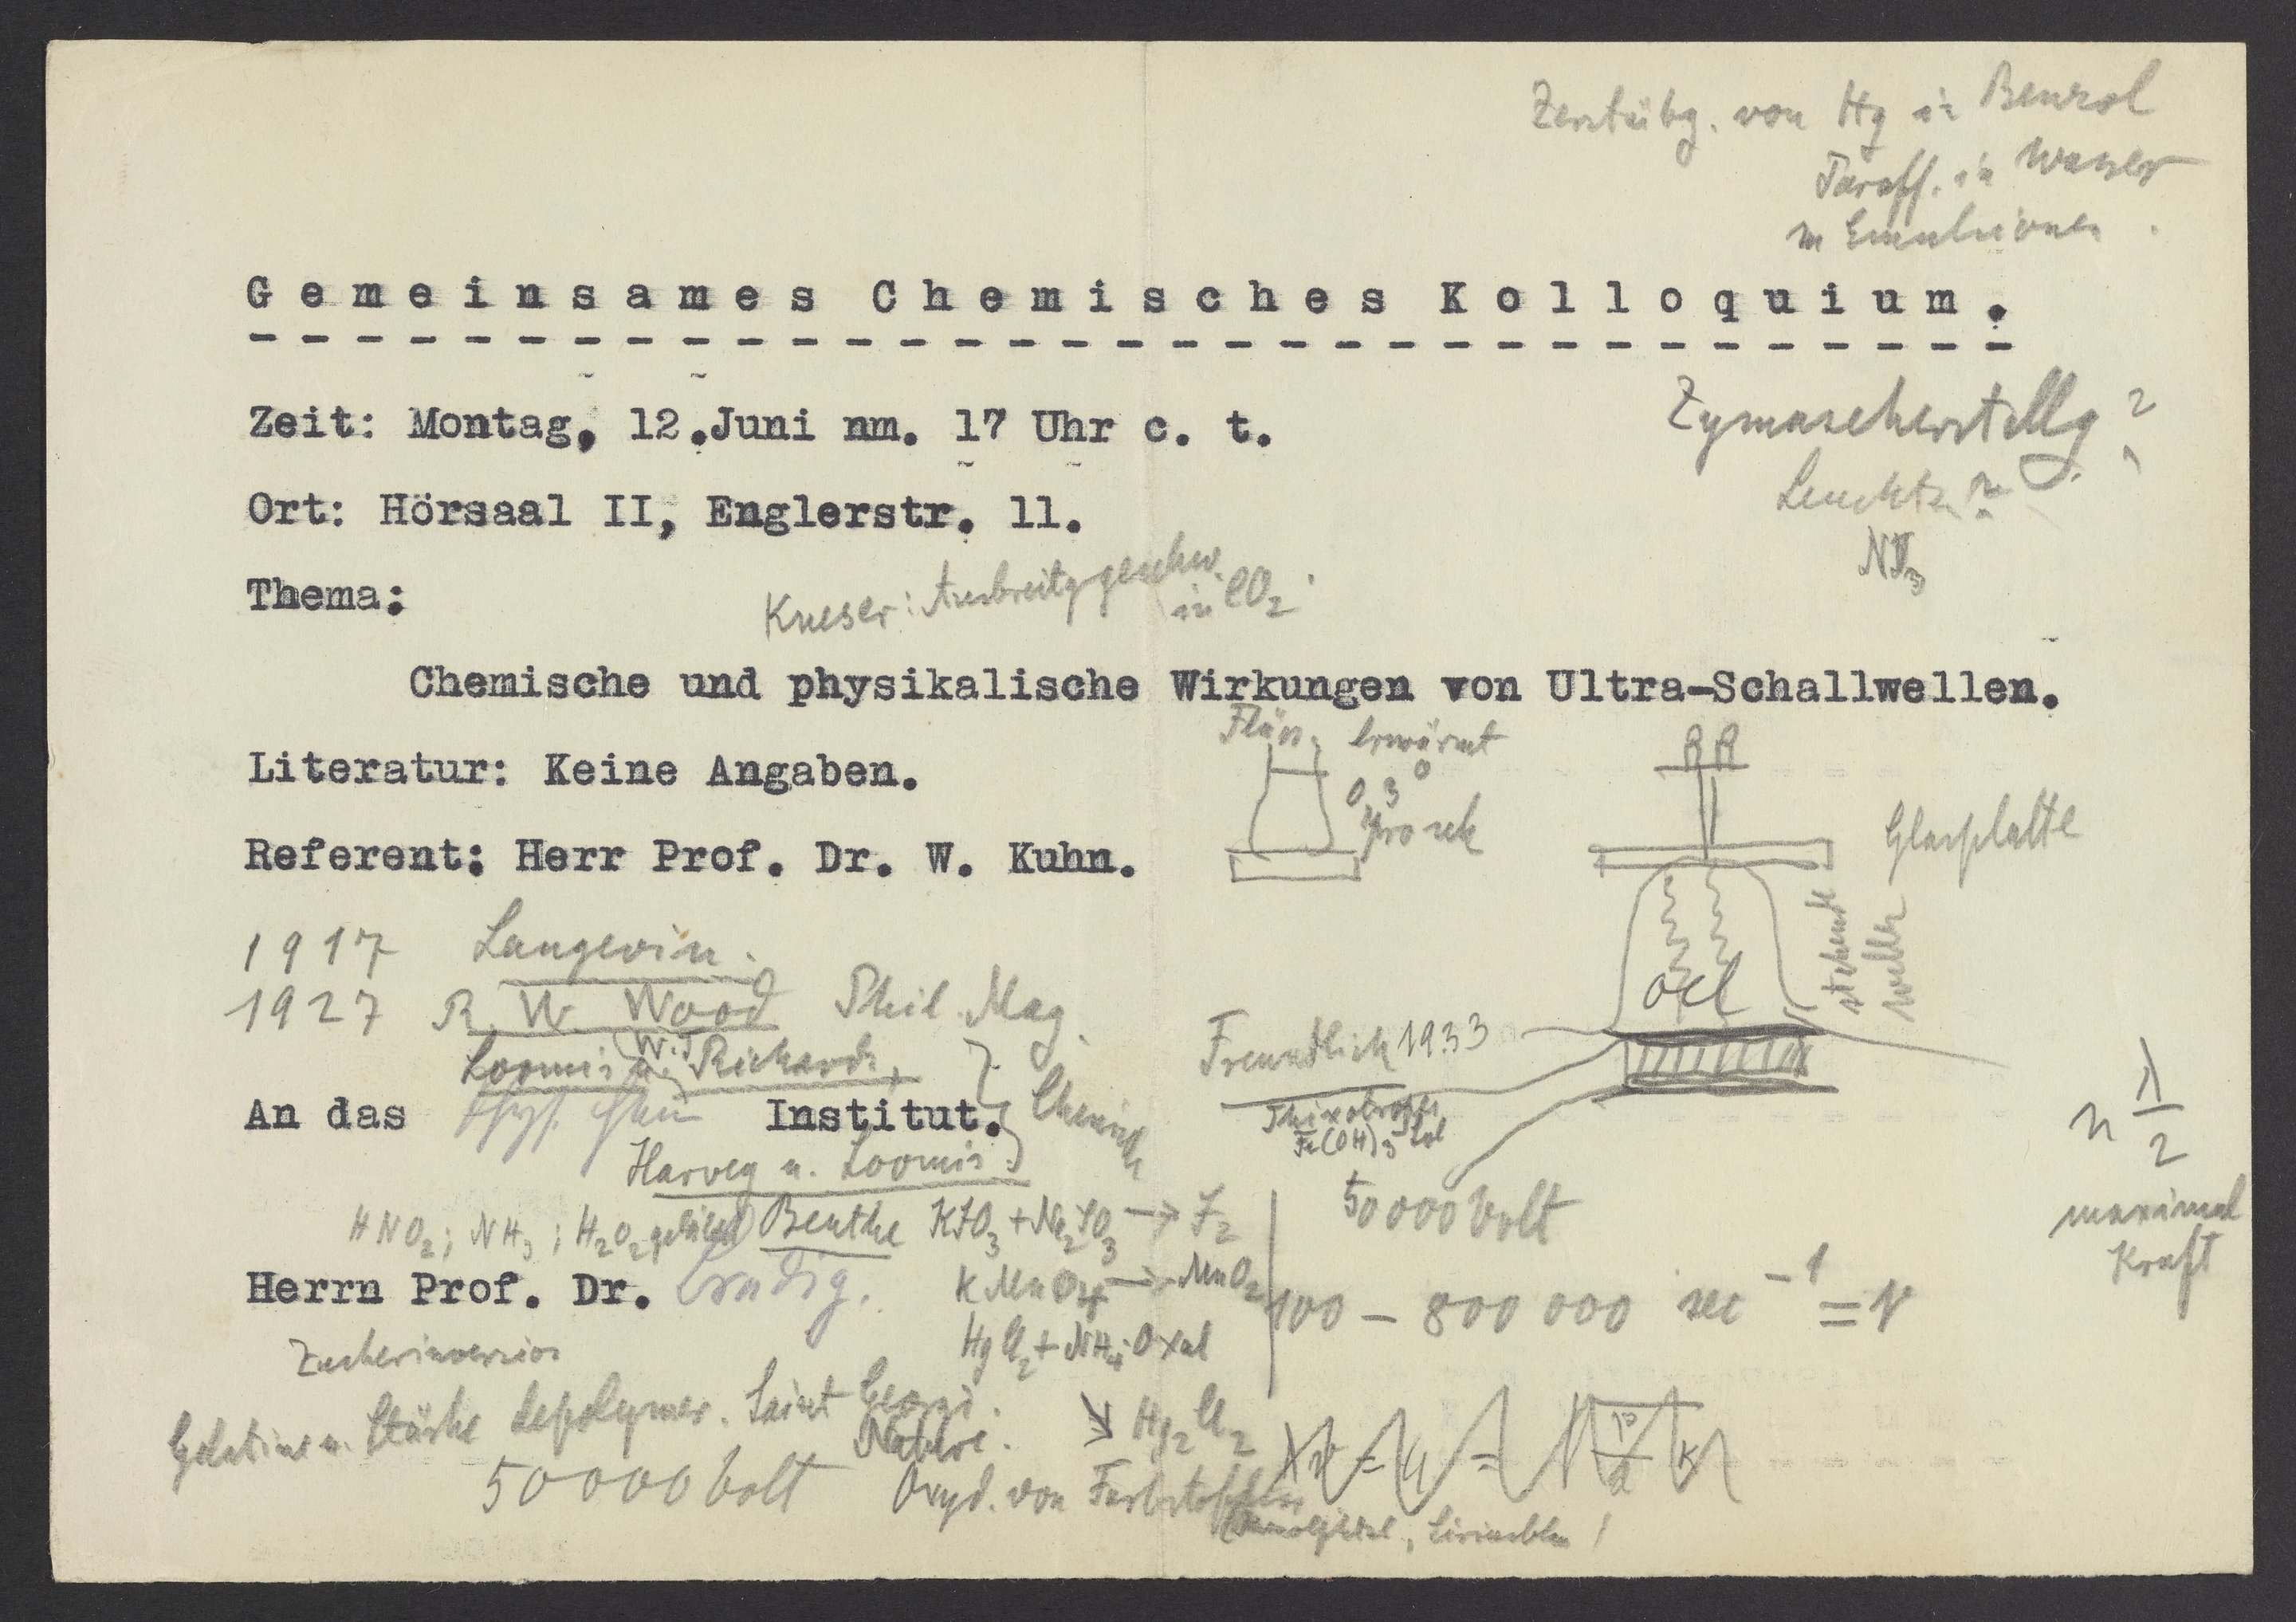 Zerstäubg. von Hg in Benzol
Paraff. in Wasser
zu Emulsionen.
Gemeinsames Chemisches Kolloquium.
Zeit: Montag, 12.Juni nm. 17 Uhr c. t.
Zymaseherstellg ?
Ort: Hörsaal II, Englerstr. 11.
Leuchten ?
NJ3
Thema:
Kneser: Ausbreitggeschw. in CO2.
Chemische und physikalische Wirkungen von Ultra-Schallwellen.
Flüss. erwärmt
0 3°
Literatur: Keine Angaben.
Frosch
Glasplatte
Referent: Herr Prof. Dr. W. Kuhn.
stehende
Wellen
Oel
1917 Langevin.
1927 R. W. Wood Phil. Mag.
Loomis u. (W.T) Richards,
Freundlich 1933
Thixotropes
Fe(OH)3 Sol
An das phys. chem Institut.
Chemisch
Harvey u. Loomis.
n λ/2
maximal
Kraft
50000 Volt
HNO2; NH3; H2O2 gebildet Beuthe KJO3 + Na2SO3 → J2
Herrn Prof. Dr.
KMnO4 → MnO2
100 – 800 000 sec⁻¹ = ν
HgCl2 + NH4-Oxal
Zuckerinversion
↘ Hg2Cl2
Gelatine u. Stärke Depolymer. Saint Georgi.
Nature.
50000 Volt
Oxyd. von Farbstoffen